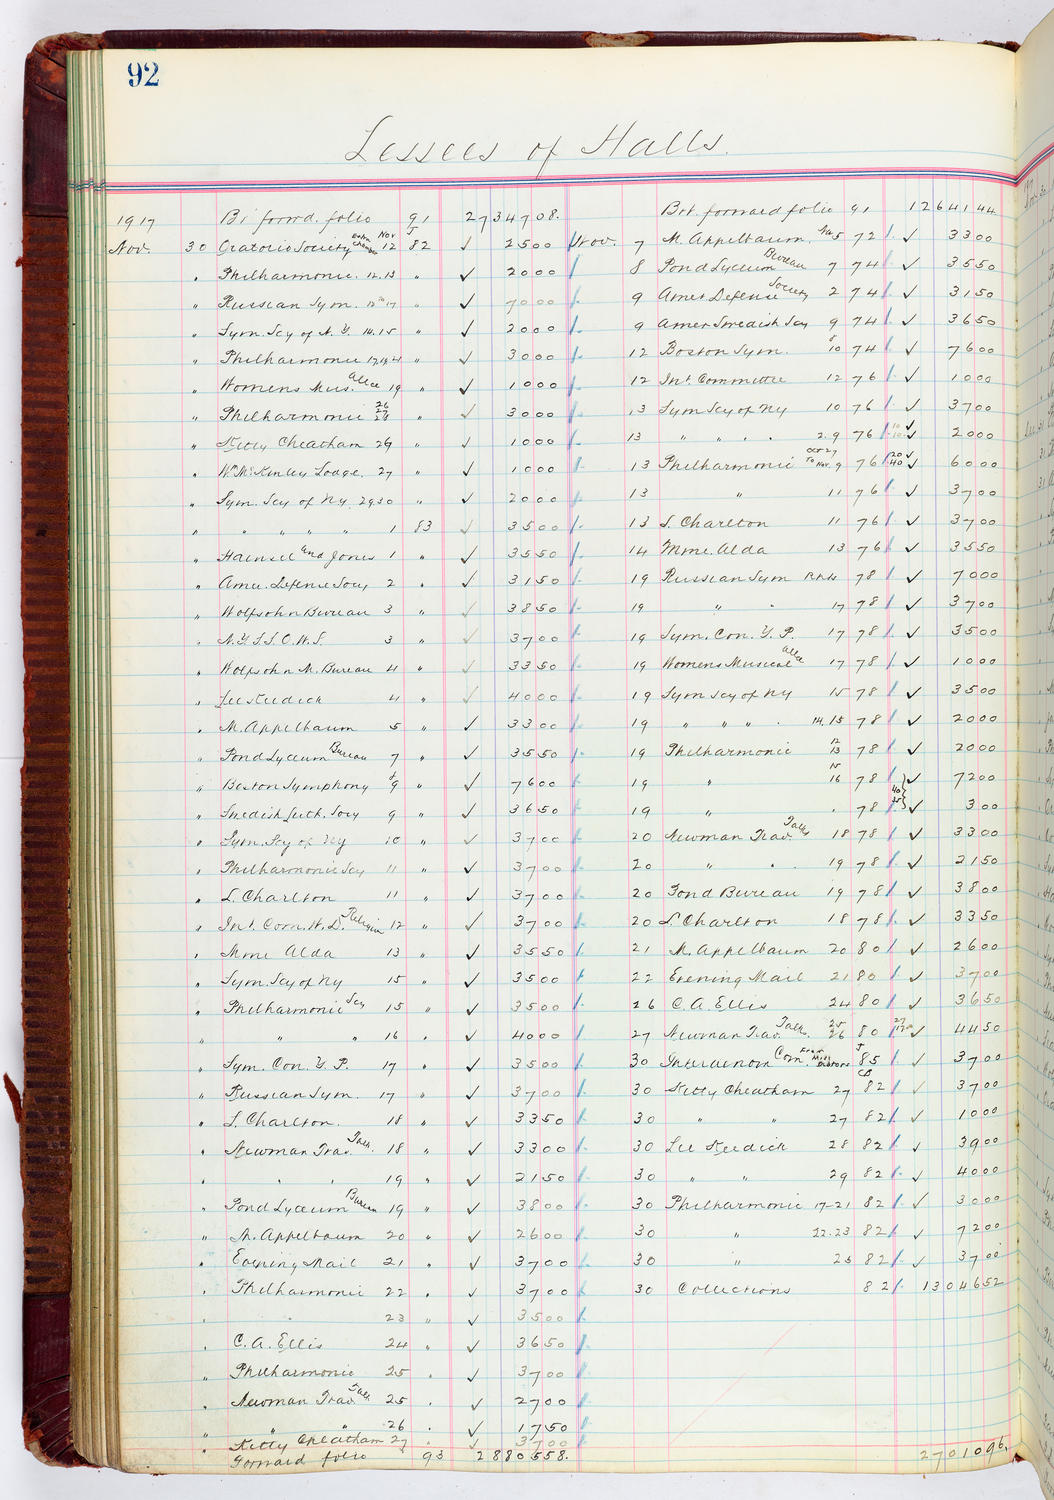 92
Lessees of Halls.
1917 Bt forwd. folio 91 2734708.
Nov. 30 Oratorio Society Extra Chorus Nov 12 J 82 ✓ 2500
" Philharmonic 12.13 " ✓ 2000
" Russian Sym. 17 " ✓ 7000
" Sym. Scy of N.Y. 14.15 " ✓ 2000
" Philharmonic " ✓ 3000
" Womens Mus. Allce 19 " ✓ 1000
" Philharmonic " ✓ 3000
" Kitty Cheatham 29 " ✓ 1000
" Wm McKinley Lodge. 27 " ✓ 1000
" Sym. Scy of N.Y. 29 30 " ✓ 2000
" " " " " 1 83 ✓ 3500
" Haensel and Jones 1 " ✓ 3550
" Amer. Defense Socy 2 " ✓ 3150
" Wolfsohn Bureau 3 " ✓ 3850
" 3 " ✓ 3700
" Wolfsohn M. Bureau 4 " ✓ 3350
" Lee Keedick 4 " ✓ 4000
" M. Appelbaum 5 " ✓ 3300
" Pond Lyceum Bureau 7 " ✓ 3550
" Boston Symphony 9 " ✓ 7600
" Swedish Luth. Socy 9 " ✓ 3650
" Sym. Scy of NY 10 " ✓ 3700
" Philharmonic Scy 11 " ✓ 3700
" L. Charlton 11 " ✓ 3700
" Int. Com. H.D. Religion 12 " ✓ 3700
" Mme Alda 13 " ✓ 3550
" Sym. Scy of NY 15 " ✓ 3500
" Philharmonic Scy 15 " ✓ 3500
" " " 16 " ✓ 4000
" Sym. Con. Y. P. 17 " ✓ 3500
" Russian Sym. 17 " ✓ 3700
" L. Charlton. 18 " ✓ 3350
" Newman Trav. Talk. 18 " ✓ 3300
" " " 19 " ✓ 2150
" Pond Lyceum Bureau 19 " ✓ 3800
" M. Appelbaum 20 " ✓ 2600
" Evening Mail 21 " ✓ 3700
" Philharmonic 22 " ✓ 3700
" " 23 " ✓ 3500
" C. A. Ellis 24 " ✓ 3650
" Philharmonic 25 " ✓ 3700
" Newman Trav. Talk 25 " ✓ 2700
" " 26 " ✓ 1750
" Kitty Cheatham 27 " ✓ 3700
Forward folio 93 2880558.
Brt. forward folio 91 1264144
Nov. 7 M. Appelbaum Nov 5 72 ✓ 3300
8 Pond Lyceum Bureau 7 74 ✓ 3550
9 Amer Defense Society 2 74 ✓ 3150
9 Amer Swedish Scy 9 74 ✓ 3650
12 Boston Sym. 10 74 ✓ 7600
12 Int. Committee 12 76 ✓ 1000
13 Sym Scy of NY 10 76 ✓ 3700
13 " " " " 2.9 76 ✓ 2000
13 Philharmonic Oct 27 to Nov. 9 76 20 ✓ 40 ✓ 6000
13 " 11 76 ✓ 3700
13 L. Charlton 11 76 ✓ 3700
14 Mme. Alda 13 76 ✓ 3550
19 Russian Sym 78 ✓ 7000
19 " " 17 78 ✓ 3700
19 Sym. Con. Y. P. 17 78 ✓ 3500
19 Womens Musical Allce 17 78 ✓ 1000
19 Sym Scy of NY 15 78 ✓ 3500
19 " " " " 14.15 78 ✓ 2000
19 Philharmonic 12 13 78 ✓ 2000
19 " 15 16 78 ✓ 7200
19 " " 78 ✓ 300
20 Newman Trav. Talks 18 78 ✓ 3300
20 " " 19 78 ✓ 2150
20 Pond Bureau 19 78 ✓ 3800
20 L. Charlton 18 78 ✓ 3350
21 M. Appelbaum 20 80 ✓ 2600
22 Evening Mail 21 80 ✓ 3700
26 C. A. Ellis 24 80 ✓ 3650
27 Newman Trav. Talks. 25 26 80 ✓ 4450
30 Interdenom Com. From Misc Debtors J 85 ✓ 3700
30 Kitty Cheatham 27 CB 82 ✓ 3700
30 " " 27 82 ✓ 1000
30 Lee Keedick 28 82 ✓ 3900
30 " " 29 82 ✓ 4000
30 Philharmonic 17-21 82 ✓ 3000
30 " 22.23 82 ✓ 7200
30 " 25 82 ✓ 3700
30 Collections 82 1304652
2701096.